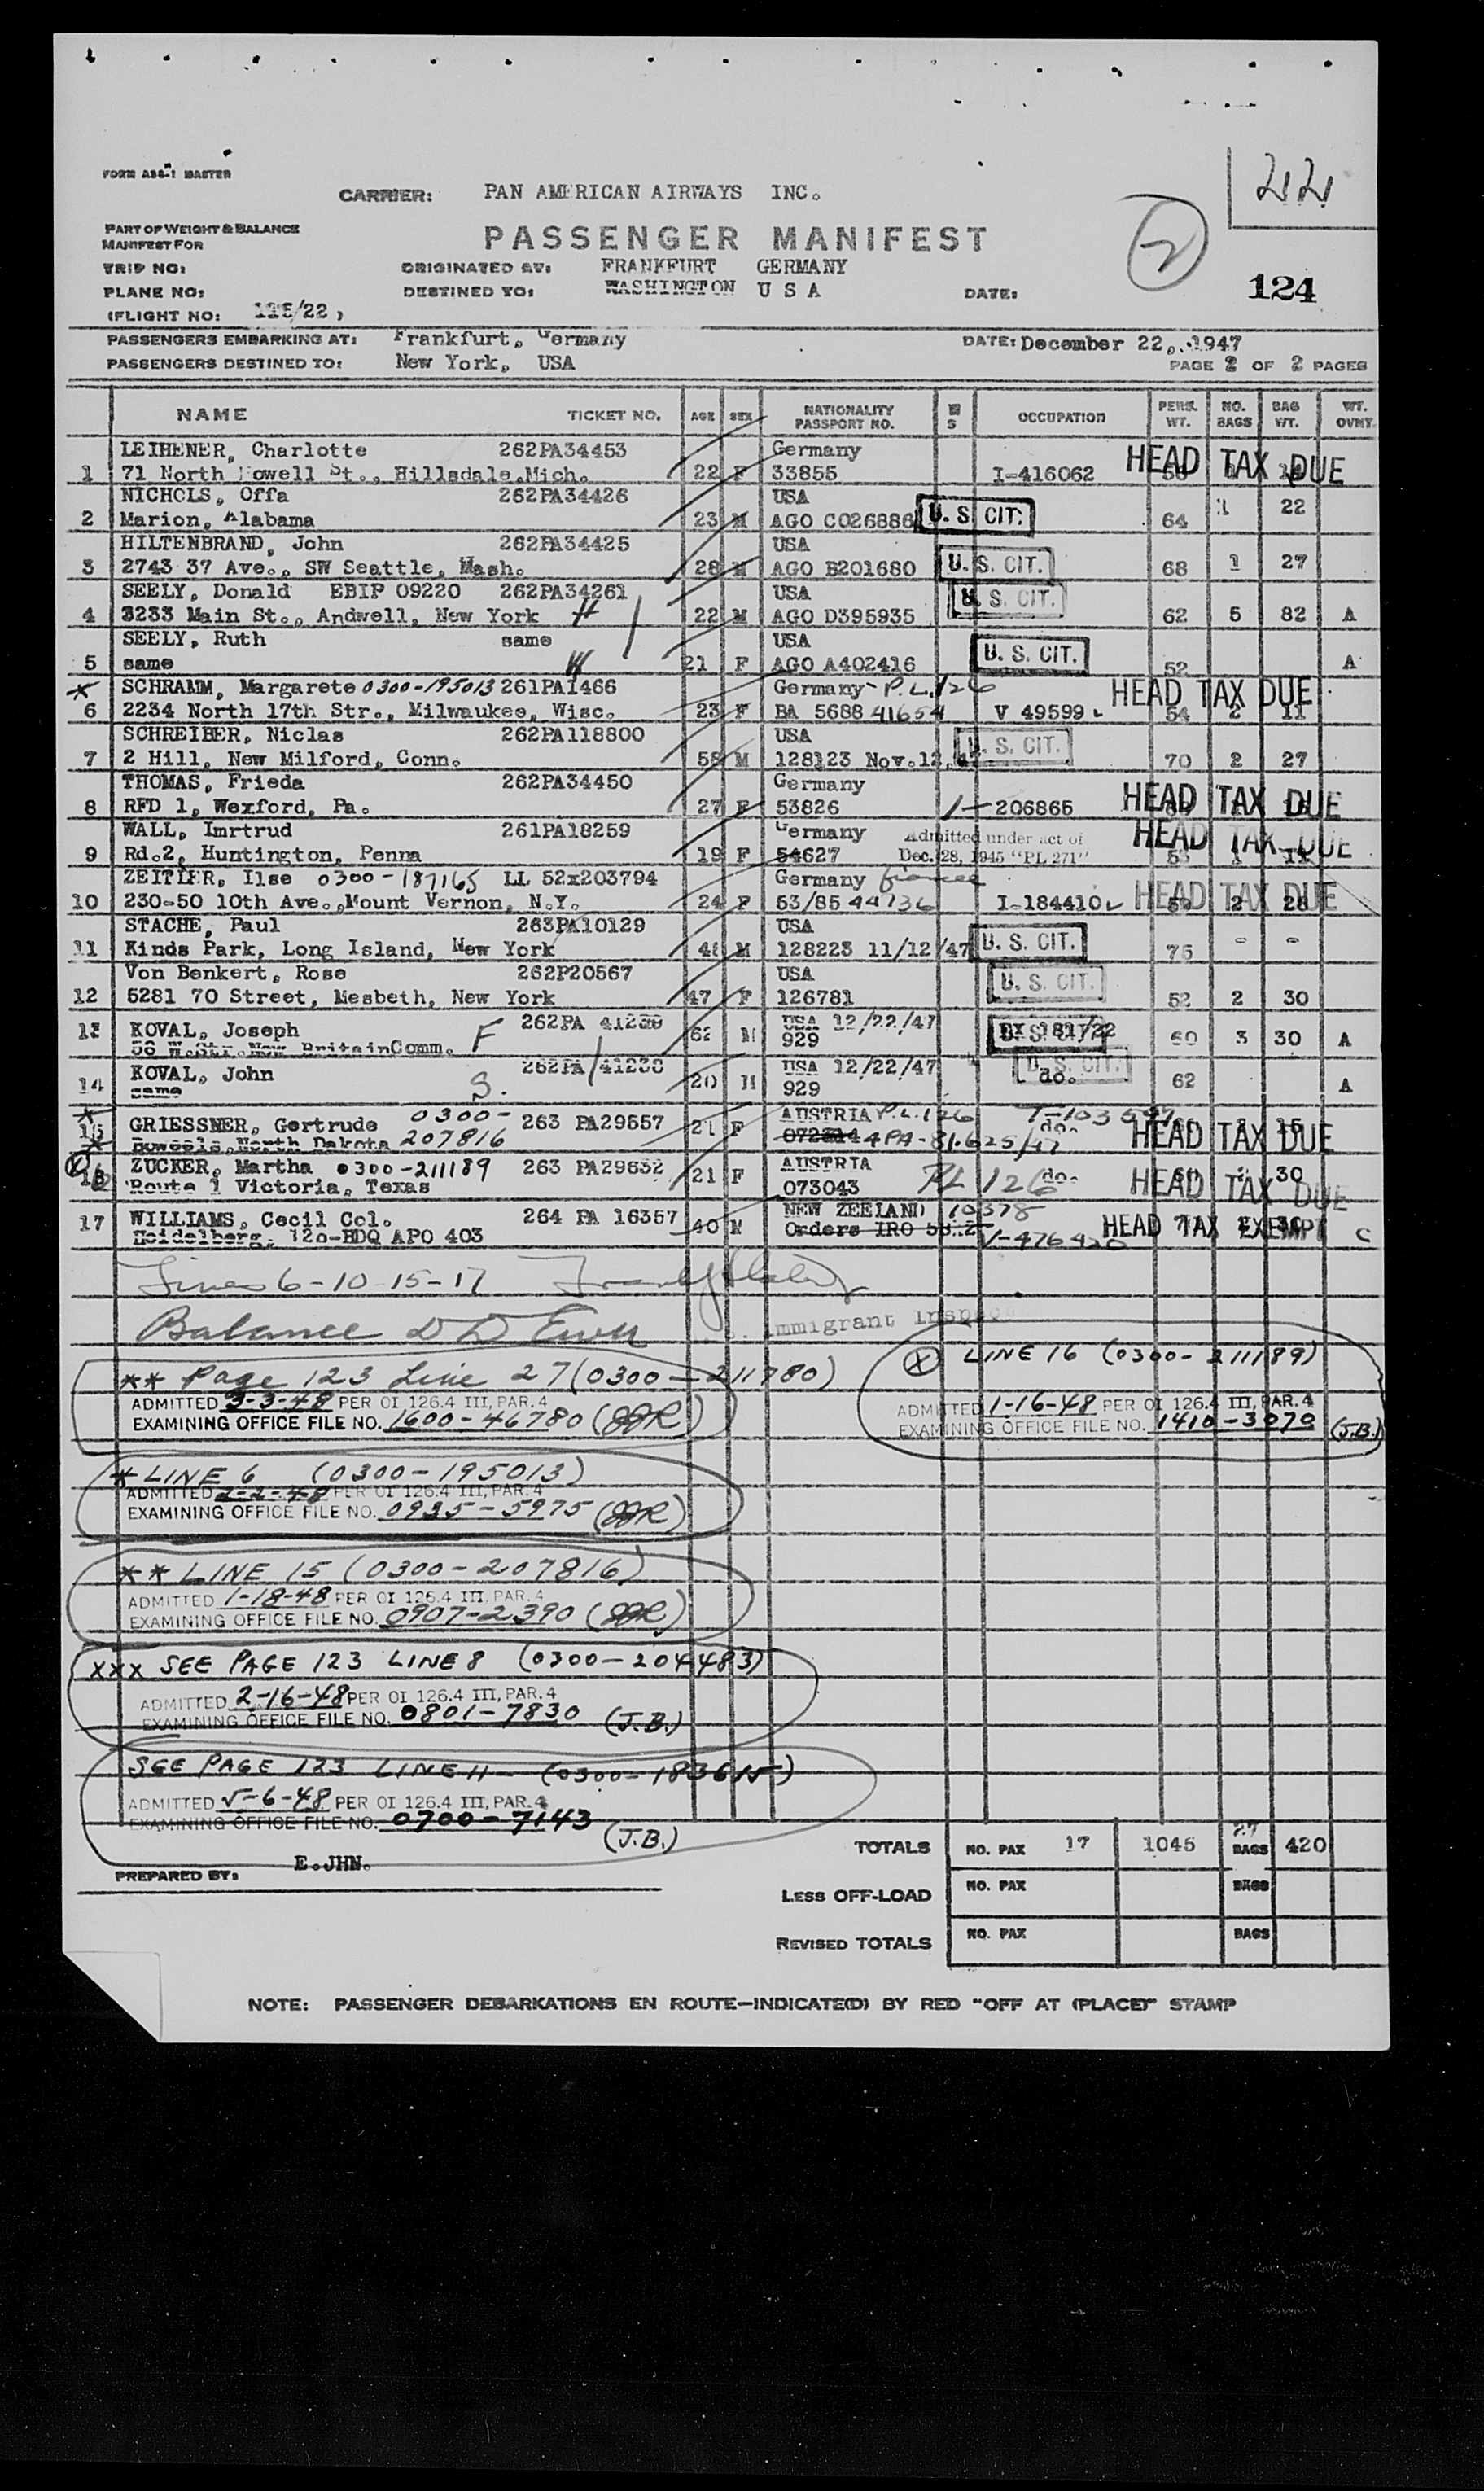 FORM AS6-1 MASTER
CARRIER: PAN AMERICAN AIRWAYS INC.
PART OF WEIGHT & BALANCE
MANIFEST FOR
PASSENGER MANIFEST
22
2
124
TRIP NO:
ORIGINATED AT: FRANKFURT GERMANY
PLANE NO:
DESTINED TO: WASHINGTON U S A
DATE:
(FLIGHT NO: /22 )
PASSENGERS EMBARKING AT: Frankfurt, Germany
DATE: December 22, 1947
PASSENGERS DESTINED TO: New York, USA
PAGE 2 OF 2 PAGES
NAME TICKET NO. AGE SEX NATIONALITY PASSPORT NO. OCCUPATION PERS. WT. NO. BAGS BAG WT. WT. OVNT.
LEIHENER, Charlotte 262PA34453 Germany
1 71 North Howell St., Hillsdale,Mich. 22 F 33855 I-416062 HEAD TAX DUE
NICHOLS, Offa 262PA34426 USA
2 Marion, Alabama 23 M AGO C026886 U. S. CIT. 64 1 22
HILTENBRAND, John 262PA34425 USA
3 2743 37 Ave., SW Seattle, Wash. 28 M AGO B201680 U. S. CIT. 68 1 27
SEELY, Donald EBIP 09220 262PA34261 USA
4 3233 Main St., Andwell, New York H 22 M AGO D395935 U. S. CIT. 62 5 82 A
SEELY, Ruth same USA
5 same W 21 F AGO A402416 U. S. CIT. 52 A
* SCHRAMM, Margarete 0300-195013 261PA1466 Germany - P.L.126
6 2234 North 17th Str., Milwaukee, Wisc. 23 F BA 5688 41654 V 49599 HEAD TAX DUE 54 2 11
SCHREIBER, Niclas 262PA118800 USA
7 2 Hill, New Milford, Conn. 58 M 128123 Nov.12, 47 U. S. CIT. 70 2 27
THOMAS, Frieda 262PA34450 Germany
8 RFD 1, Wexford, Pa. 27 F 53826 I-206865 HEAD TAX DUE
WALL, Imrtrud 261PA18259 Germany Admitted under act of
9 Rd.2, Huntington, Penna 19 F 54627 Dec. 28, 1945 "PL 271" HEAD TAX DUE
ZEITLER, Ilse 0300-187165 LL 52x203794 Germany fiancee
10 230-50 10th Ave.,Mount Vernon, N.Y. 24 F 53/85 44736 I-184410 HEAD TAX DUE 2 28
STACHE, Paul 263PA10129 USA
11 Kinds Park, Long Island, New York M 128223 11/12/47 U. S. CIT. 75 - -
Von Benkert, Rose 262P20567 USA
12 5281 70 Street, Mesbeth, New York 47 F 126781 U. S. CIT. 52 2 30
13 KOVAL, Joseph F 262PA 41239 62 M USA 12/22/47 181/22 60 3 30 A
56 W.Str.New BritainComm. 929
14 KOVAL, John S. 262PA/41238 20 M USA 12/22/47 do. U. S. CIT. 62 A
same 929
* 15 GRIESSNER, Gertrude 0300- 263 PA29557 21 F AUSTRIA P.L.126 do. HEAD TAX DUE
Boweels,North Dakota 207816
ZUCKER, Martha 0300-211189 263 PA29632 21 F AUSTRIA do. HEAD TAX DUE 30
Route 1 Victoria, Texas 073043 PL 126
17 WILLIAMS, Cecil Col. 264 PA 16357 40 M NEW ZEELAND 10378 HEAD TAX EXEMPT C
Heidelberg, 120-HDQ APO 403 Orders IRO V-476420
Lines 6-10-15-17
Immigrant Inspec
Balance
** Page 123 Line 27 (0300-211780)
ADMITTED 3-3-48 PER OI 126.4 III, PAR. 4
EXAMINING OFFICE FILE NO. 1600-46780
X LINE 16 (0300-211189)
ADMITTED 1-16-48 PER OI 126.4 III, PAR. 4
EXAMINING OFFICE FILE NO. 1410-3070 (J.B.)
* LINE 6 (0300-195013)
ADMITTED 2-2-48 PER OI 126.4 III, PAR. 4
EXAMINING OFFICE FILE NO. 0935-5975
** LINE 15 (0300-207816)
ADMITTED 1-18-48 PER OI 126.4 III, PAR. 4
EXAMINING OFFICE FILE NO. 0907-2390
XXX SEE PAGE 123 LINE 8 (0300-204483)
ADMITTED 2-16-48 PER OI 126.4 III, PAR. 4
EXAMINING OFFICE FILE NO. 0801-7830 (J.B.)
SEE PAGE 123 LINE 11- (0300-183615)
ADMITTED 5-6-48 PER OI 126.4 III, PAR. 4
EXAMINING OFFICE FILE NO. 0700-7143 (J.B.)
PREPARED BY: E.JHN.
TOTALS NO. PAX 17 1045 27 BAGS 420
LESS OFF-LOAD NO. PAX BAGS
REVISED TOTALS NO. PAX BAGS
NOTE: PASSENGER DEBARKATIONS EN ROUTE-INDICATE(D) BY RED "OFF AT (PLACE)" STAMP